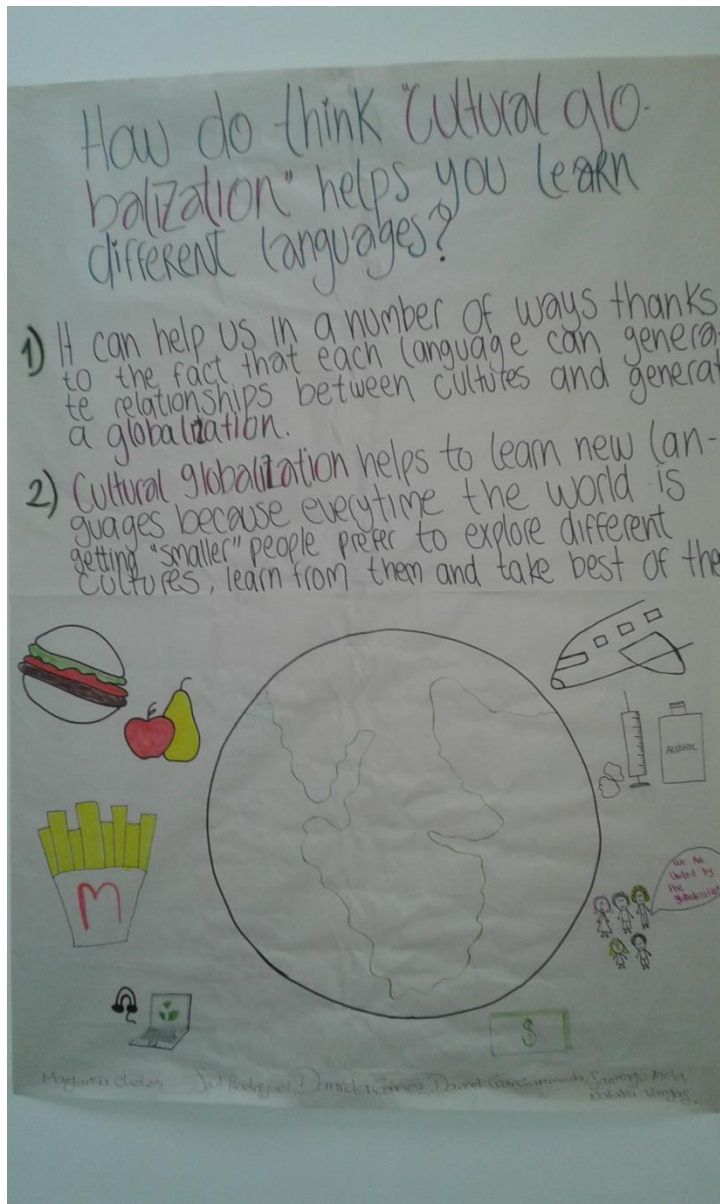 How do think "Cultural glo-
balization" helps you learn
different languages?
1) It can help us in a number of ways thanks
to the fact that each language can genera-
te relationships between cultures and generat
a globalization.
2) Cultural globalization helps to learn new lan-
guages because everytime the world is
getting "smaller" people prefer to explore different
cultures, learn from them and take best of the
ALCOHOL
We Are
United by
the
M
$
Daniel Santiago
Natalia Vargas.